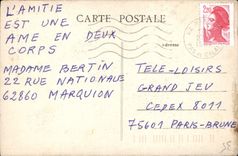 CARTE POSTALE
L'AMITIE
EST UNE
AME EN DEUX
CORPS
MADAME BERTIN
22 RUE NATIONALE
62860 MARQUION
adresse
2,20
TELE-LOISIRS
GRAND JEU
CEDEX 8011
75601 PARIS-BRUNE